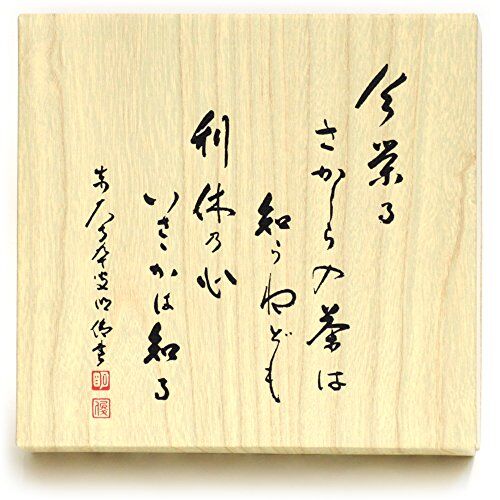 今栄る
さかしらの茶は
知らねども
利休の心
いさゝかは知る
明
優